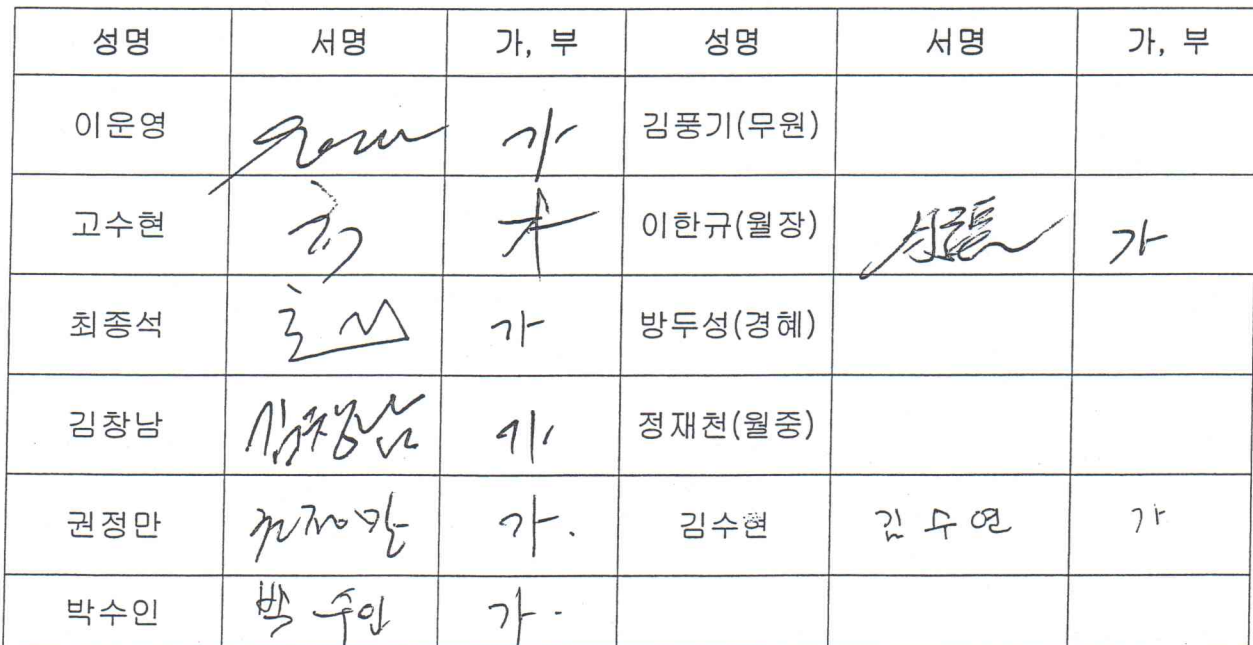 성명 서명 가, 부 성명 서명 가, 부
이운영 가 김풍기(무원)
고수현 이한규(월장) 가
최종석 가 방두성(경혜)
김창남 김창남 가 정재천(월중)
권정만 권정만 가. 김수현 김수연 가
박수인 박수인 가.